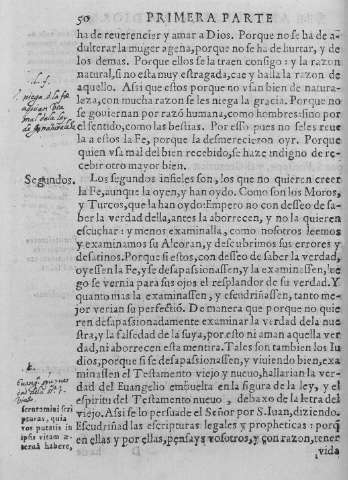 50 PRIMERA PARTE
ha de reuerencier y amar a Dios. Porque no se ha de a-
dulterar la muger agena, porque no se ha de hurtar, y de
los demas. Porque ellos se la traen consigo: y la razon
natural, si no esta muy estragada, cae y halla la razon de
aquello. Assi que estos porque no vsan bien de natura-
leza, con mucha razon se les niega la gracia. Porque no
se gouiernan por razó humana, como hombres: sino por
el sentido, como las bestias. Por esso pues no se les reue
la a estos la Fe, porque la desmerecieron oyr. Porque
quien vsa mal del bien recebido, se haze indigno de re-
cebir otro mayor bien.
Segundos. Los segundos infieles son, los que no quieren creer
la Fe, aunque la oyen, y han oydo. Como son los Moros,
y Turcos, que la han oydo: Empero no con desseo de sa-
ber la verdad della, antes la aborrecen, y no la quieren
escuchar: y menos examinalla, como nosotros leemos
y examinamos su Alcoran, y descubrimos sus errores y
desatinos. Porque si estos, con desseo de saber la verdad,
oyessen la Fe, y se desapassionassen, y la examinassen, lue
go se vernia para sus ojos el resplandor de su verdad. Y
quanto mas la examinassen, y escudriñassen, tanto me-
jor verian su perfectió. De manera que porque no quie
ren desapassionadamente examinar la verdad dela nue
stra, y la falsedad de la suya, por esto ni aman aquella ver
dad, ni aborrecen esta mentira. Tales son tambien los Iu
dios, porque si se desapassionassen, y viuiendo bien, exa
minassen el Testamento viejo y nueuo, hallarian la ver-
dad del Euangelio embuelta en la figura de la ley, y el
espiritu del Testamento nueuo, debaxo de la letra del
viejo. Assi se lo persuade el Señor por S. Iuan, diziendo.
Escudriñad las escripturas legales y propheticas: porq̃
en ellas y por ellas, pensays vosotros, y con razon, tener
vida
scrutamini scri
pturas, quia
vos putatis in
ipsis vitam æ-
ternã habere,